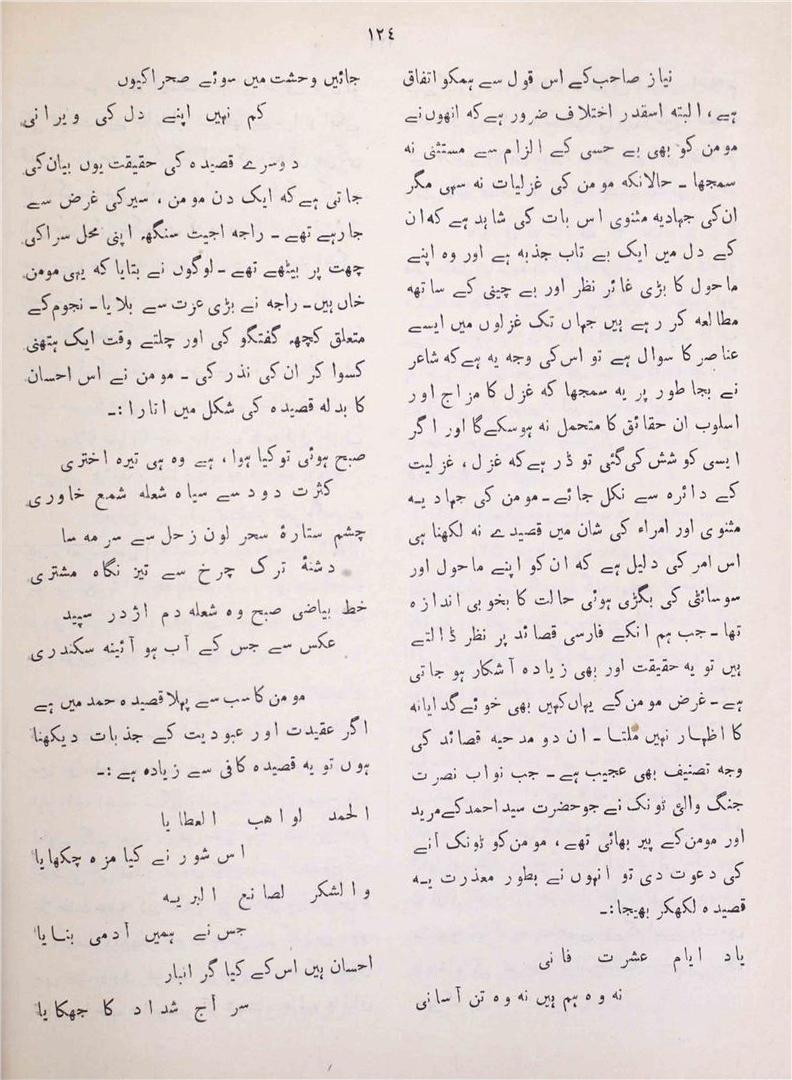 ١٢٤
نیاز صاحب کے اس قول سے ہمکو اتفاق
ہے، البتہ اسقدر اختلاف ضرور ہے کہ انھوں نے
مومن کو بھی بے حسی کے الزام سے مستثنیٰ نہ
سمجھا ۔ حالانکہ مومن کی غزلیات نہ سہی مگر
ان کی جہادیہ مثنوی اس بات کی شاہد ہے کہ ان
کے دل میں ایک بے تاب جذبہ ہے اور وہ اپنے
ماحول کا بڑی غائر نظر اور بے چینی کے ساتھ
مطالعہ کر رہے ہیں جہاں تک غزلوں میں ایسے
عناصر کا سوال ہے تو اس کی وجہ یہ ہے کہ شاعر
نے بجا طور پر یہ سمجھا کہ غزل کا مزاج اور
اسلوب ان حقائق کا متحمل نہ ہوسکے گا اور اگر
ایسی کوشش کی گئی تو ڈر ہے کہ غزل، غزلیت
کے دائرہ سے نکل جائے ۔ مومن کی جہادیہ
مثنوی اور امراء کی شان میں قصیدے نہ لکھنا ہی
اس امر کی دلیل ہے کہ ان کو اپنے ماحول اور
سوسائٹی کی بگڑی ہوئی حالت کا بخوبی اندازہ
تھا ۔ جب ہم انکے فارسی قصائد پر نظر ڈالتے
ہیں تو یہ حقیقت اور بھی زیادہ آشکار ہو جاتی
ہے ۔ غرض مومن کے یہاں کہیں بھی خوئے گدایانہ
کا اظہار نہیں ملتا ۔ ان دو مدحیہ قصائد کی
وجہ تصنیف بھی عجیب ہے ۔ جب نواب نصرت
جنگ والئ ٹونک نے جو حضرت سید احمد کے مرید
اور مومن کے پیر بھائی تھے، مومن کو ٹونک آنے
کی دعوت دی تو انہوں نے بطور معذرت یہ
قصیدہ لکھکر بھیجا :۔
یاد ایام عشرت فانی
نہ وہ ہم ہیں نہ وہ تن آسانی
جائیں وحشت میں سوئے صحرا کیوں
کم نہیں اپنے دل کی ویرانی
دوسرے قصیدہ کی حقیقت یوں بیان کی
جاتی ہے کہ ایک دن مومن ، سیر کی غرض سے
جارہے تھے ۔ راجہ اجیت سنگھ اپنی محل سرا کی
چھت پر بیٹھے تھے ۔ لوگوں نے بتایا کہ یہی مومن
خاں ہیں ۔ راجہ نے بڑی عزت سے بلایا ۔ نجوم کے
متعلق کچھ گفتگو کی اور چلتے وقت ایک ہتھنی
کسوا کر ان کی نذر کی ۔ مومن نے اس احسان
کا بدلہ قصیدہ کی شکل میں اتارا :۔
صبح ہوئی تو کیا ہوا، ہے وہ ہی تیرہ اختری
کثرت دود سے سیاہ شعلہ شمع خاوری
چشم ستارۂ سحر لون زحل سے سرمہ سا
دشنۂ ترک چرخ سے تیز نگاہ مشتری
خط بیاضی صبح وہ شعلہ دم اژدر سپید
عکس سے جس کے آب ہو آئینہ سکندری
مومن کا سب سے پہلا قصیدہ حمد میں ہے
اگر عقیدت اور عبودیت کے جذبات دیکھنا
ہوں تو یہ قصیدہ کافی سے زیادہ ہے :۔
الحمد لواهب العطایا
اس شور نے کیا مزہ چکھایا
والشکر لصانع البریہ
جس نے ہمیں آدمی بنایا
احسان ہیں اس کے کیا گر انبار
سر آج شداد کا جھکایا